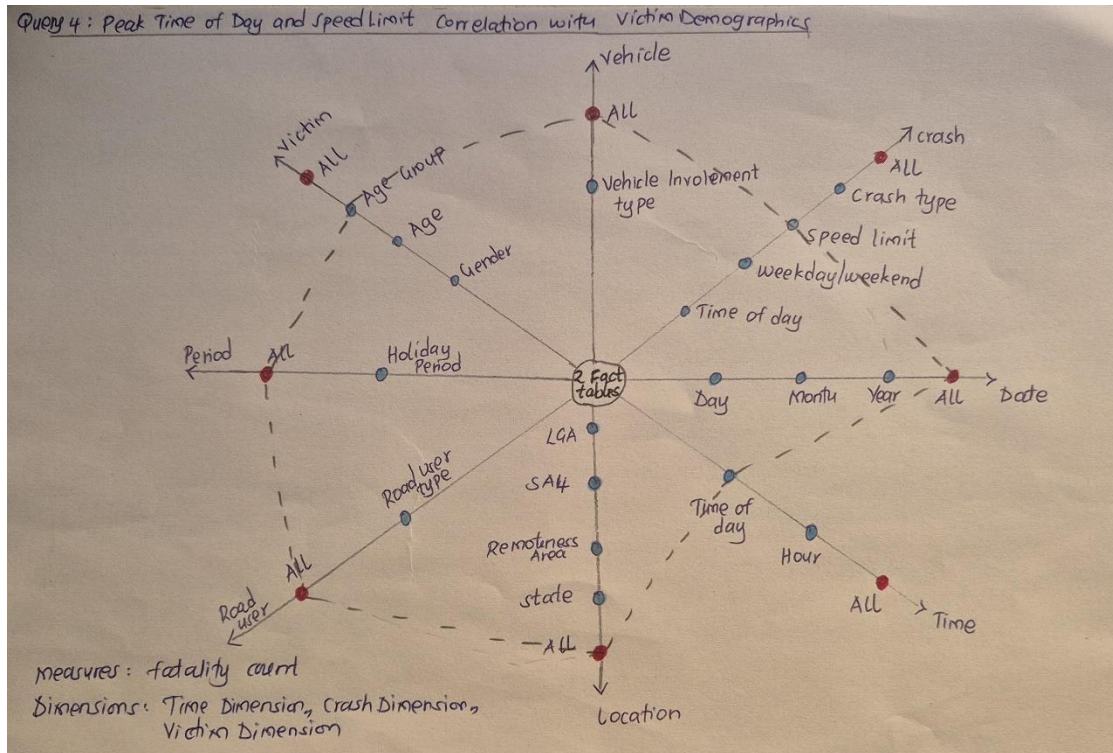 Query 4: Peak Time of Day and Speed Limit Correlation with Victim Demographics
Vehicle
ALL
Vehicle Involement
type
Victim
ALL
Age Group
Age
Gender
crash
ALL
Crash type
Speed limit
weekday/weekend
Time of day
Period
ALL
Holiday
Period
2 Fact
tables
Day
Month
Year
ALL
Date
LGA
SA4
Remoteness
Area
state
ALL
Location
Road user
type
ALL
Road
user
Time of
day
Hour
ALL
Time
Measures: fatality count
Dimensions: Time Dimension, Crash Dimension,
Victim Dimension